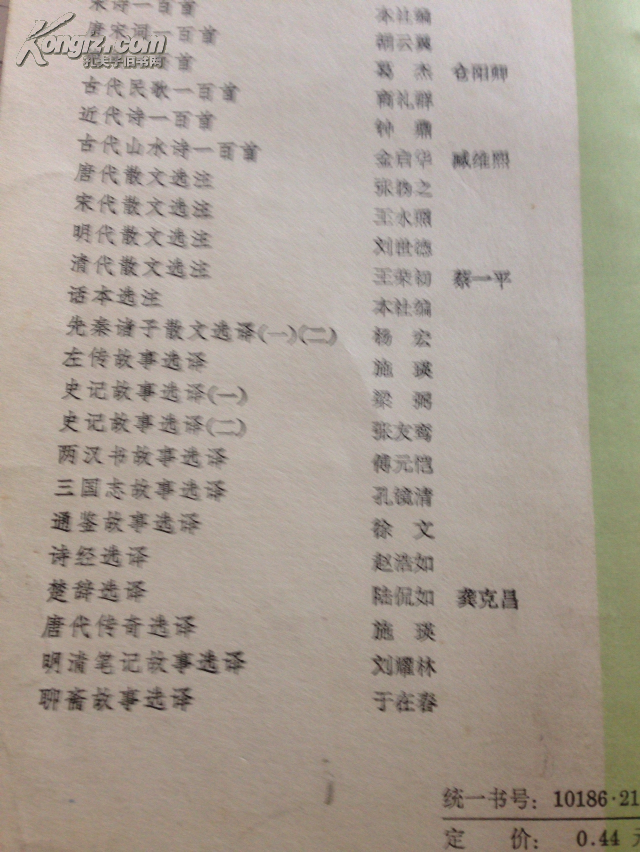 宋诗一百首 本社编
唐宋词一百首 胡云翼
百首 葛 杰 仓阳卿
古代民歌一百首 商礼群
近代诗一百首 钟 鼎
古代山水诗一百首 金启华 臧维熙
唐代散文选注 张㧑之
宋代散文选注 王水照
明代散文选注 刘世德
清代散文选注 王荣初 蔡一平
话本选注 本社编
先秦诸子散文选译(一)(二) 杨 宏
左传故事选译 施 瑛
史记故事选译(一) 梁 弼
史记故事选译(二) 张友鸾
两汉书故事选译 傅元恺
三国志故事选译 孔镜清
通鉴故事选译 徐 文
诗经选译 赵浩如
楚辞选译 陆侃如 龚克昌
唐代传奇选译 施 瑛
明清笔记故事选译 刘耀林
聊斋故事选译 于在春
统一书号：10186·21
定 价： 0.44 元
Kongfz.com
孔夫子旧书网